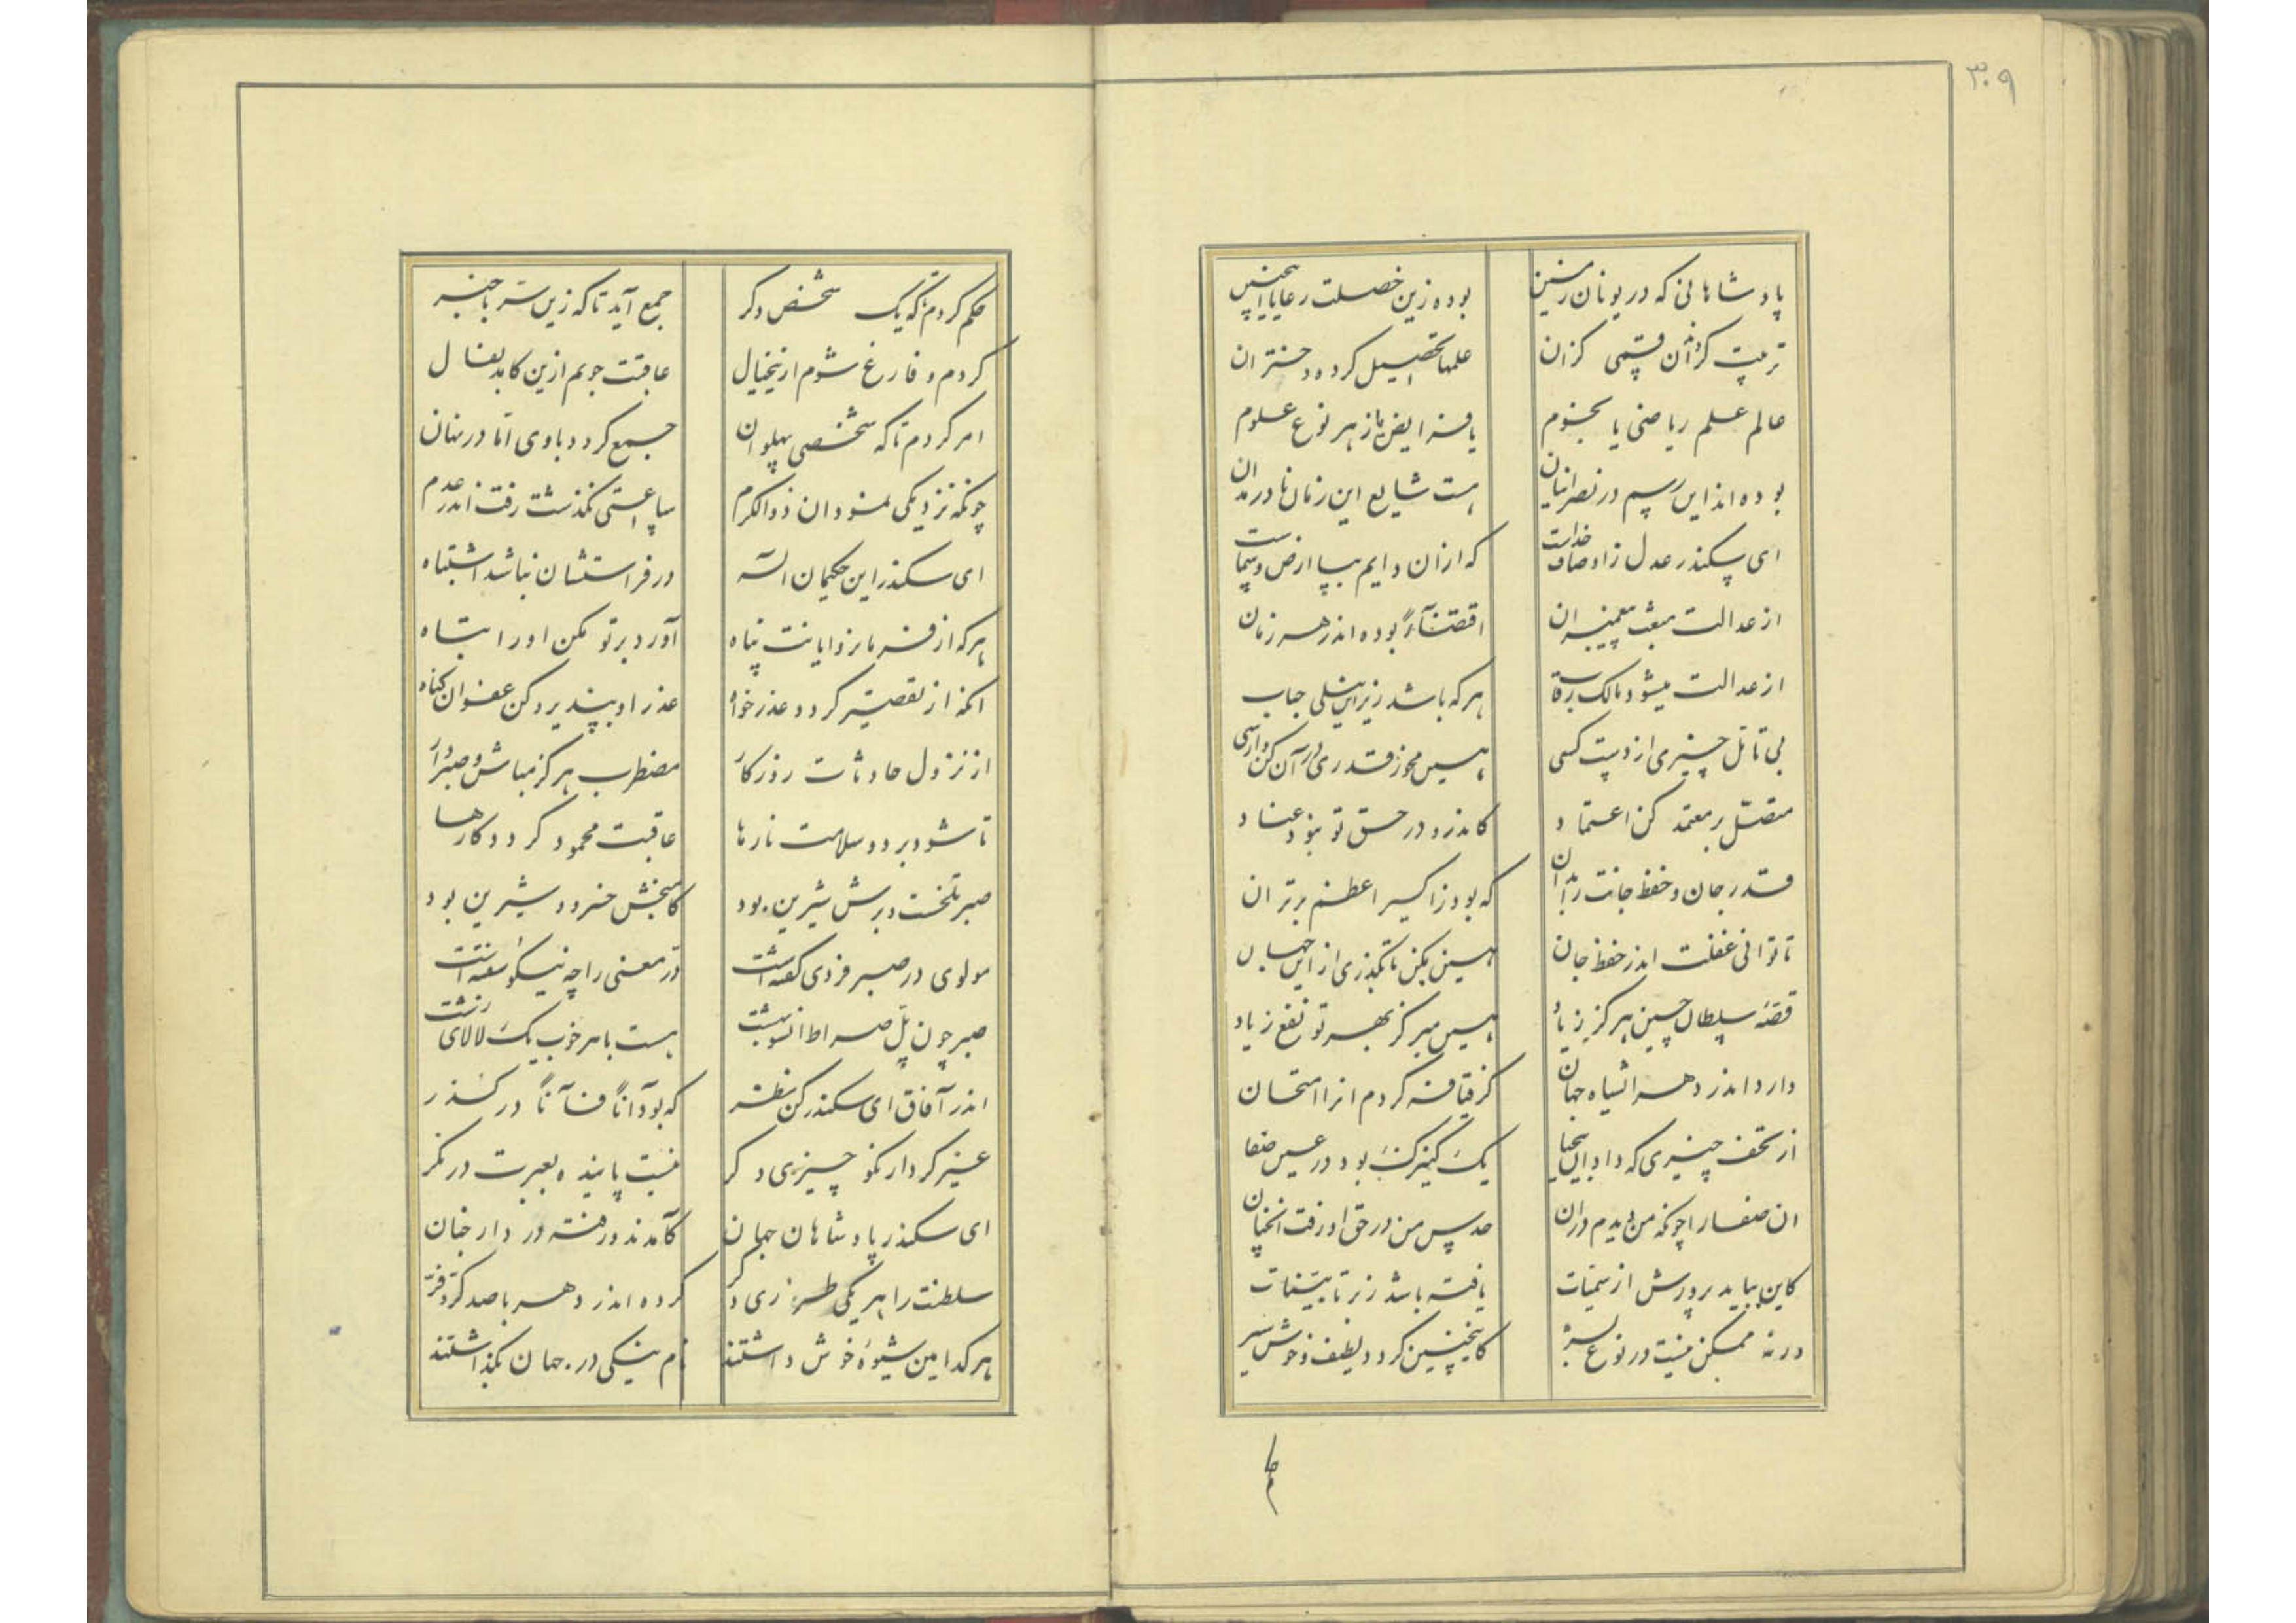 ۳۰۹
پادشاهانی که در یونان زمین بوده زین خصلت رعایا اینچنین
تربیت کردند آن قسمی کزان علمها تحصیل کرده دختران
عالم علم ریاضی یا نجوم یافته ایضا ز هر نوع علوم
بوده اند این رسم در نصرانیان هست شایع این زمان نا در
ای سکندر عدل زاوصاف خداست که ازان دایم بپا ارض و سماست
از عدالت مبعث پیغمبران اقتضا بوده اندر هر زمان
از عدالت میشود مالک رقاب هر که باشد زیر این نیلی حباب
بی تامل چیزی از دست کسی هین مخور قدری در آن کن وارسی
متصل بر معتمد کن اعتماد کاندرو در حق تو نبود عناد
قدر جان و حفظ جانت را بدان که بود ز اکسیر اعظم برتر ان
تا توانی غفلت اندر حفظ جان هین مکن تا نگذری از این جهان
قصه سلطان حسین هرگز ز یاد هین مبر کز بهر تو نفع زیاد
دارد اندر دهر اشیاه جهان کز قیافه کردم انرا امتحان
از تحف چیزی که داد این یک کنیزک بود در عین صفا
ان صفا را چونکه من دیدم دران حدس من در حق او رفت انچنان
کاین بباید پرورش از سمیات یافته باشد ز ترتیب نبات
ورنه ممکن نیست در نوع بشر کاینچنین گردد لطیف و خوش سیر
حکم
حکم کردم تا که یک شخص دگر جمع آید تا که زین سر با خبر
کردم و فارغ شوم از این خیال عاقبت جویم ازین کامد بفال
امر کردم تا که شخصی پهلوان جمع گردد با وی اما در نهان
چونکه نزدیکی نمود ان ذو الکرم ساعتی نگذشت رفت اندر عدم
ای سکندر این حکیمان اله در فراستشان نباشد اشتباه
هر که از فرمانروایانت پناه آورد بر تو مکن او را تباه
انکه از تقصیر گردد عذر خواه عذر او بپذیر و کن عفو ان گناه
از نزول حادثات روزگار مضطرب هرگز مباش و صبر دار
تا شود برد و سلامت نارها عاقبت محمود گردد کارها
صبر تلخست و برش شیرین بود کامبخش خسرو و شیرین بود
مولوی در صبر فردی گفته است در معنی را چه نیکو سفته است
صبر چون پل صراط انسو بهشت هست با هر خوب یک لالای زشت
اندر آفاق ای سکندر کن نظر که بود آنا فآنا در گذر
غیر کردار نکو چیزی دگر نیست پاینده بعبرت در نگر
ای سکندر پادشاهان جهان کآمدند و رفته در دار جنان
سلطنت را هر یکی طرزی دگر کرده اندر دهر با صد کر و فر
هر کدامین شیوه خوش داشتند نام نیکی در جهان بگذاشتند